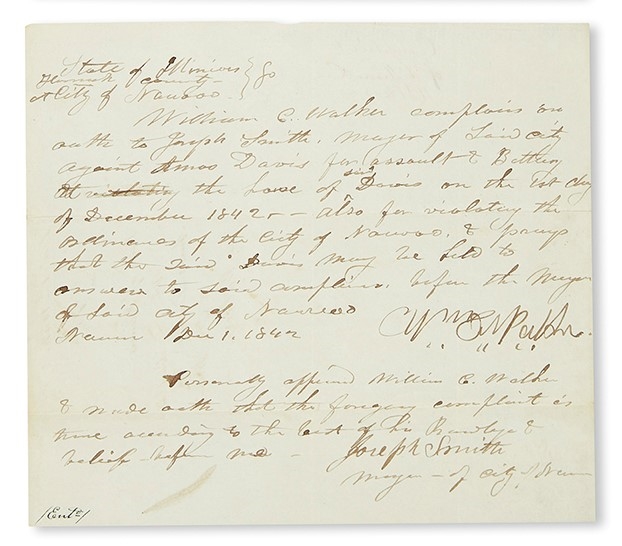 State of Illinois } ss
Hancock County
City of Nauvoo
William C. Walker complains on
oath to Joseph Smith, Mayor of said city
against Amos Davis for assault & Battery
At violating the house of said Davis on the 1st day
of December 1842 - also for violating the
ordinances of the City of Nauvoo. & prays
that the said Davis may be held to
answer to said complaint, before the Mayor
of said city of Nauvoo
Nauvoo Dec 1, 1842 Wm C Walker.
Personally appeared William C. Walker
& made oath that the foregoing complaint is
true according to the best of his knowledge &
belief - before me - Joseph Smith
Mayor - of city of Nauvoo